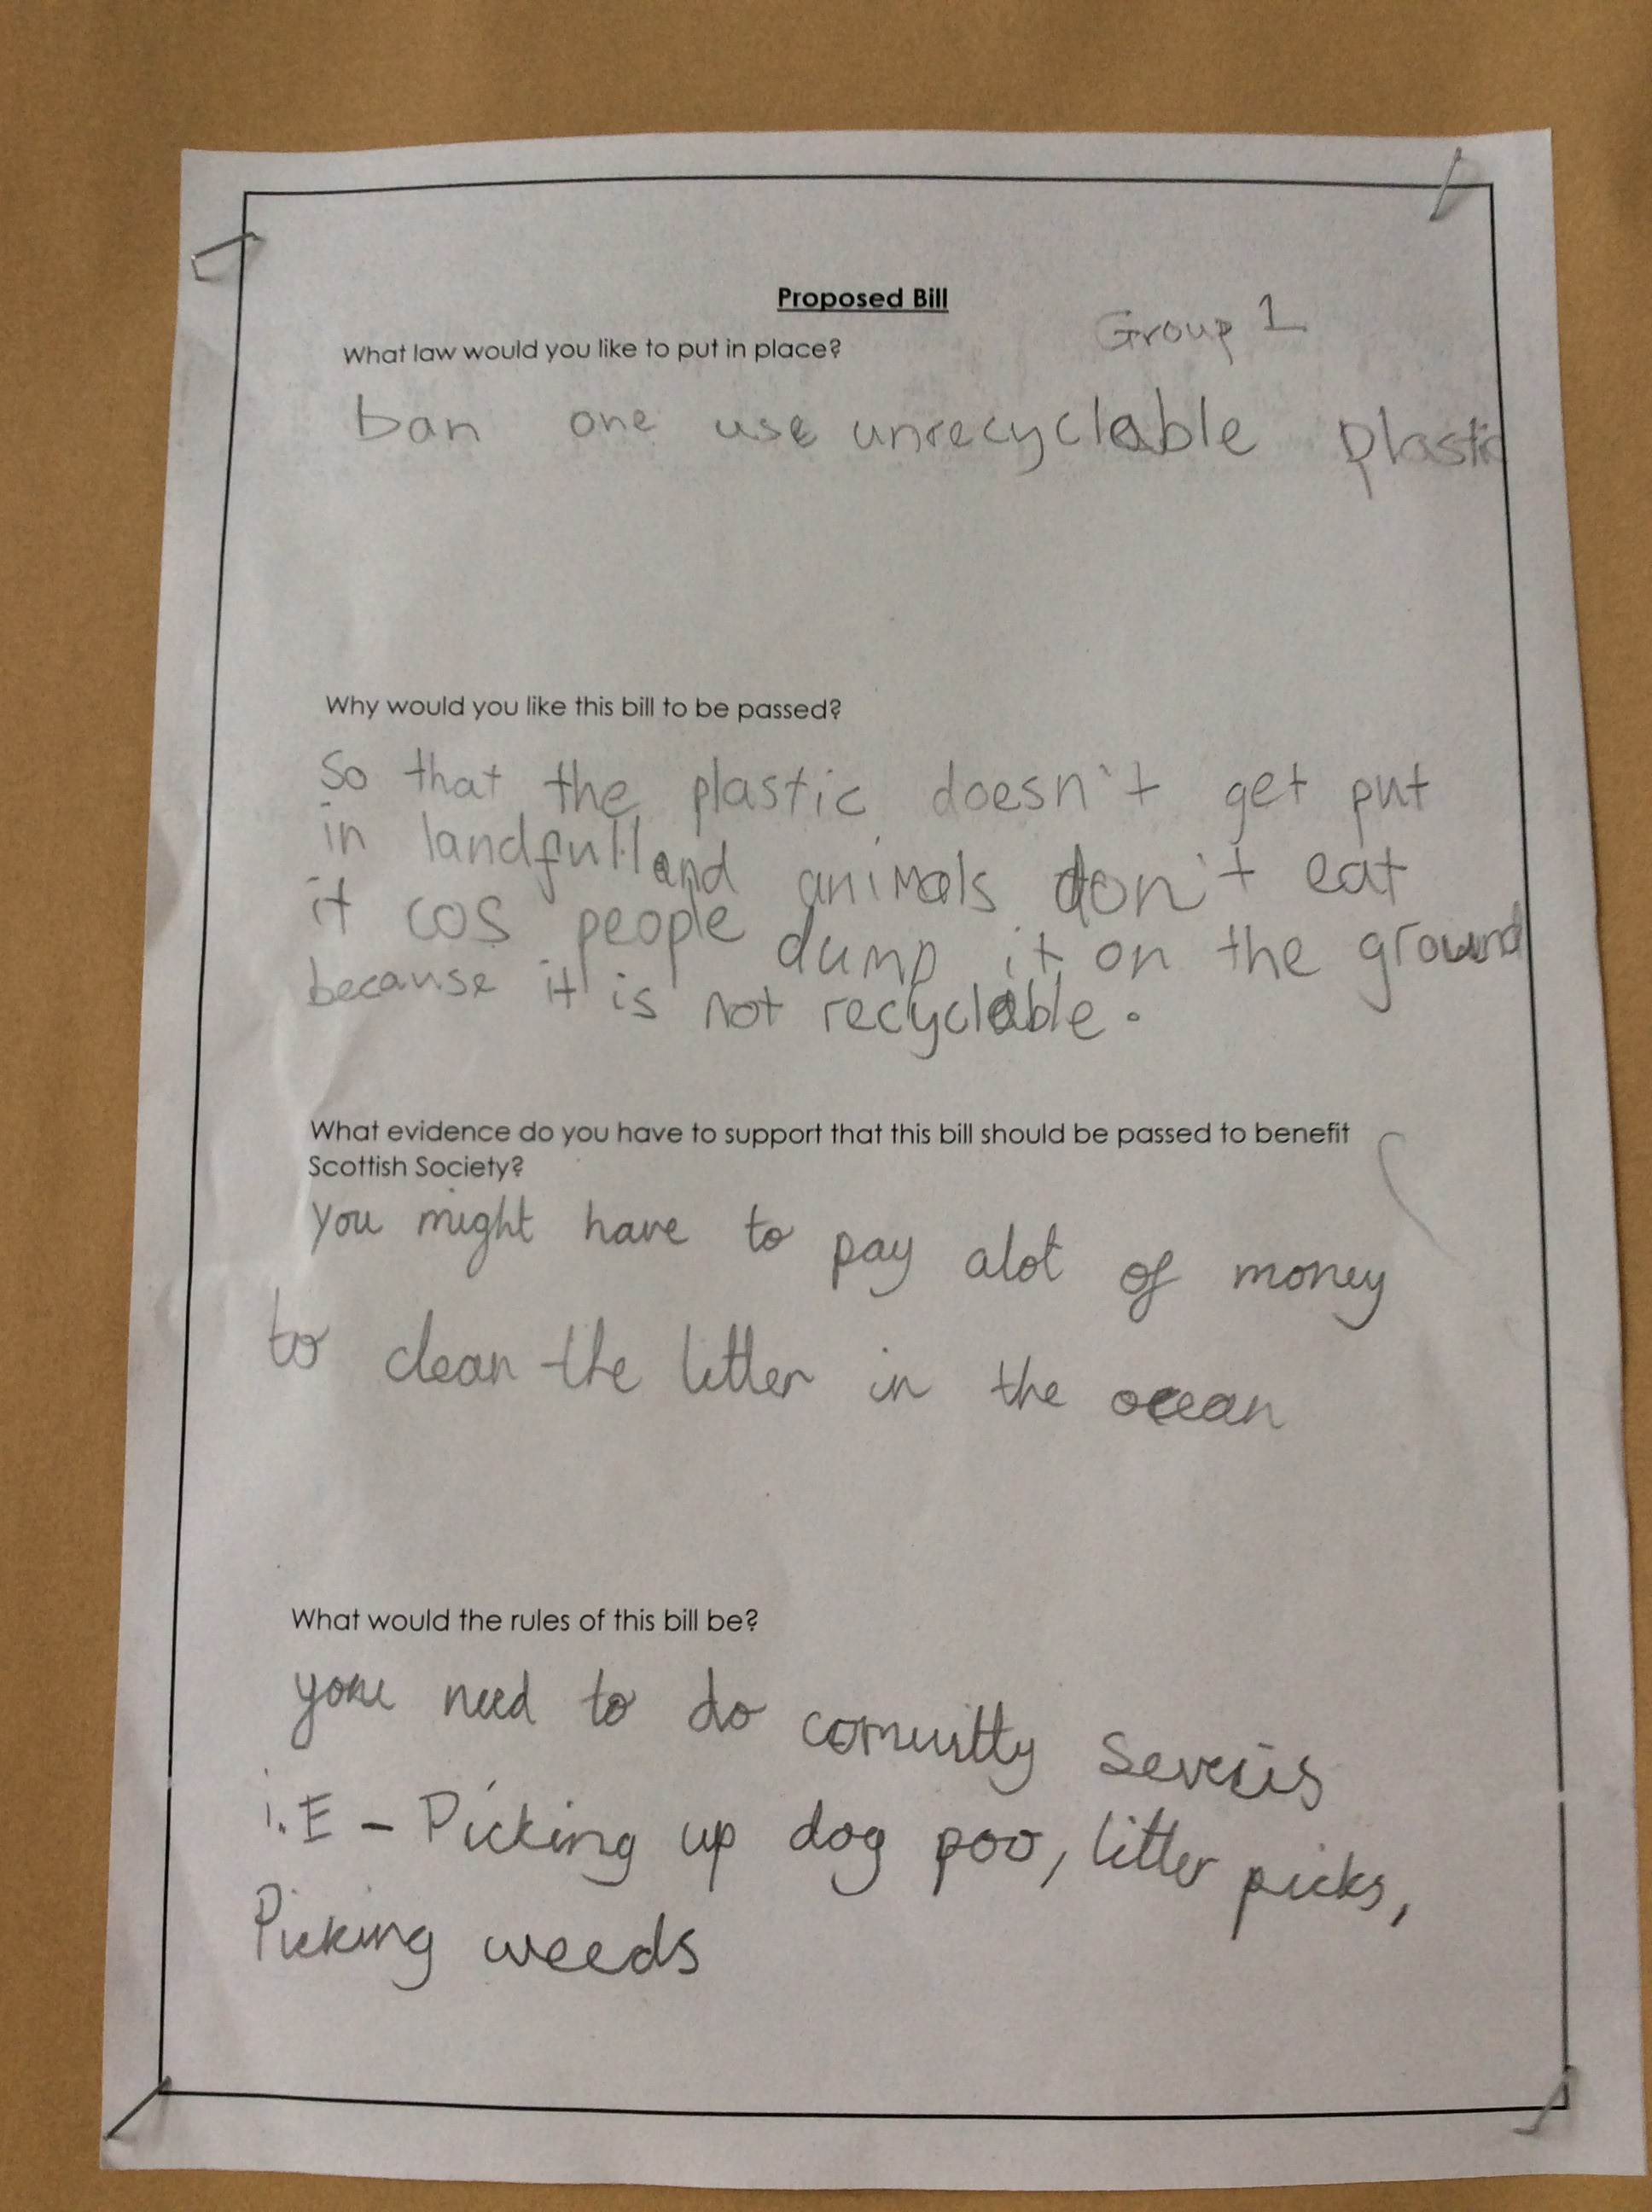 Proposed Bill
Group 1
What law would you like to put in place?
ban one use unrecyclable plastic
Why would you like this bill to be passed?
So that the plastic doesn't get put
in landfull and animals don't eat
it cos people dump it on the ground
because it is not recyclable.
What evidence do you have to support that this bill should be passed to benefit
Scottish Society?
you might have to pay alot of money
to clean the litter in the ocean
What would the rules of this bill be?
need to do
i.E - Picking up dog poo, litter picks,
Picking weeds